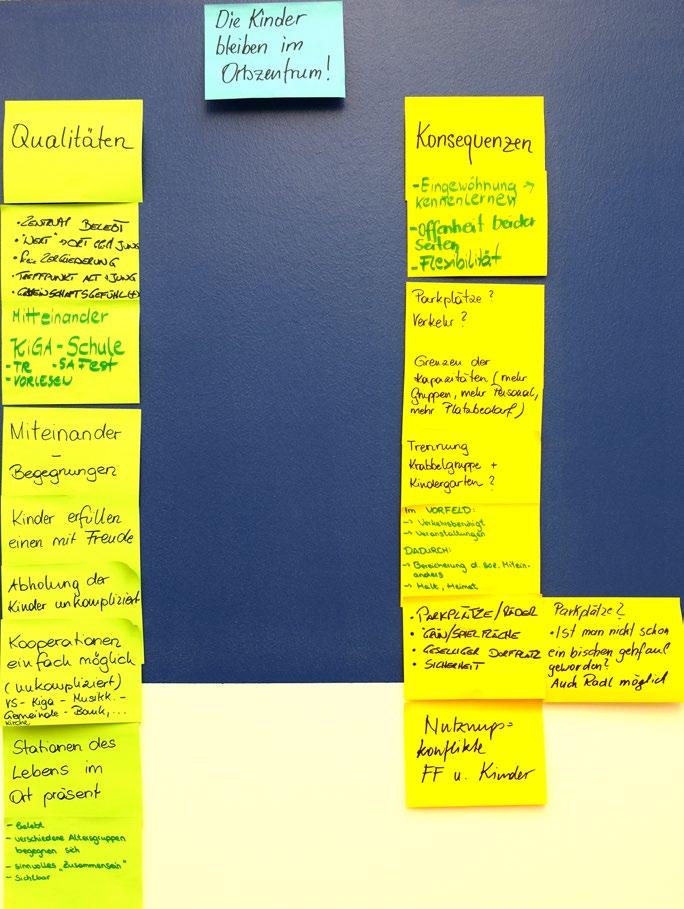 Die Kinder
bleiben im
Ortszentrum!
Qualitäten
• ZENTRUM BELEBT
• "WERT" → ORT JUNG
• ZERGLIEDERUNG
• TREFFPUNKT ALT + JUNG
• GEMEINSCHAFTSGEFÜHL (+)
Mitteinander
KiGA - Schule
- TR - SA Fest
- VORLESEN
Miteinander
-
Begegnungen
Kinder erfüllen
einen mit Freude
Abholung der
Kinder unkompliziert
Kooperationen
einfach möglich
(unkompliziert)
VS - Kiga - Musikk. -
Gemeinde - Bank, ...
Kirche
Stationen des
Lebens im
Ort präsent
- belebt
- verschiedene Altersgruppen
begegnen sich
- sinnvolles "Zusammensein"
- Sichtbar
Konsequenzen
- Eingewöhnung →
kennenlernen
- Offenheit beider
Seiten
- Flexibilität
Parkplätze?
Verkehr?
Grenzen der
Kapazitäten (mehr
Gruppen, mehr Personal,
mehr Platzbedarf)
Trennung
Krabbelgruppe +
Kindergarten?
Im VORFELD:
→ Verkehrsberuhigt
→ Veranstaltungen
DADURCH:
→ Bereicherung d. soz. Mitein-
anders
→ Halt, Heimat
• PARKPLÄTZE/RÄDER
• GRÜN/SPIELFLÄCHE
• GESELLIGER DORFPLATZ
• SICHERHEIT
Parkplätze?
• Ist man nicht schon
ein bischen gehfaul
geworden?
Auch Radl möglich
Nutzungs=
konflikte
FF u. Kinder